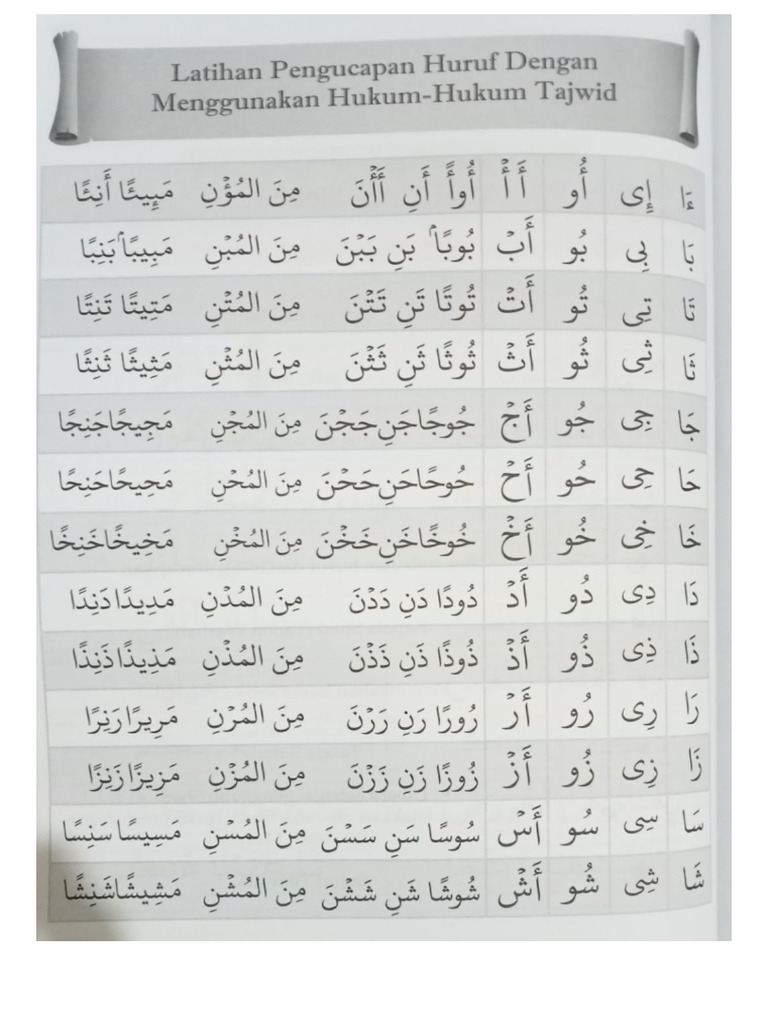 Latihan Pengucapan Huruf Dengan
Menggunakan Hukum-Hukum Tajwid
ءَا إِى أُو أَأْ أُوأً أَنِ أَأْنَ مِنَ الْمُؤْنِ مَئِيئًا أَنِئًا
بَا بِى بُو أَبْ بُوبًا بَنِ بَبْنَ مِنَ الْمُبْنِ مَبِيبًا بَنِبًا
تَا تِى تُو أَتْ تُوتًا تَنِ تَتْنَ مِنَ الْمُتْنِ مَتِيتًا تَنِتًا
ثَا ثِى ثُو أَثْ ثُوثًا ثَنِ ثَثْنَ مِنَ الْمُثْنِ مَثِيثًا ثَنِثًا
جَا جِى جُو أَجْ جُوجًا جَنِ جَجْنَ مِنَ الْمُجْنِ مَجِيجًا جَنِجًا
حَا حِى حُو أَحْ حُوحًا حَنِ حَحْنَ مِنَ الْمُحْنِ مَحِيحًا حَنِحًا
خَا خِى خُو أَخْ خُوخًا خَنِ خَخْنَ مِنَ الْمُخْنِ مَخِيخًا خَنِخًا
دَا دِى دُو أَدْ دُودًا دَنِ دَدْنَ مِنَ الْمُدْنِ مَدِيدًا دَنِدًا
ذَا ذِى ذُو أَذْ ذُوذًا ذَنِ ذَذْنَ مِنَ الْمُذْنِ مَذِيذًا ذَنِذًا
رَا رِى رُو أَرْ رُورًا رَنِ رَرْنَ مِنَ الْمُرْنِ مَرِيرًا رَنِرًا
زَا زِى زُو أَزْ زُوزًا زَنِ زَزْنَ مِنَ الْمُزْنِ مَزِيزًا زَنِزًا
سَا سِى سُو أَسْ سُوسًا سَنِ سَسْنَ مِنَ الْمُسْنِ مَسِيسًا سَنِسًا
شَا شِى شُو أَشْ شُوشًا شَنِ شَشْنَ مِنَ الْمُشْنِ مَشِيشًا شَنِشًا